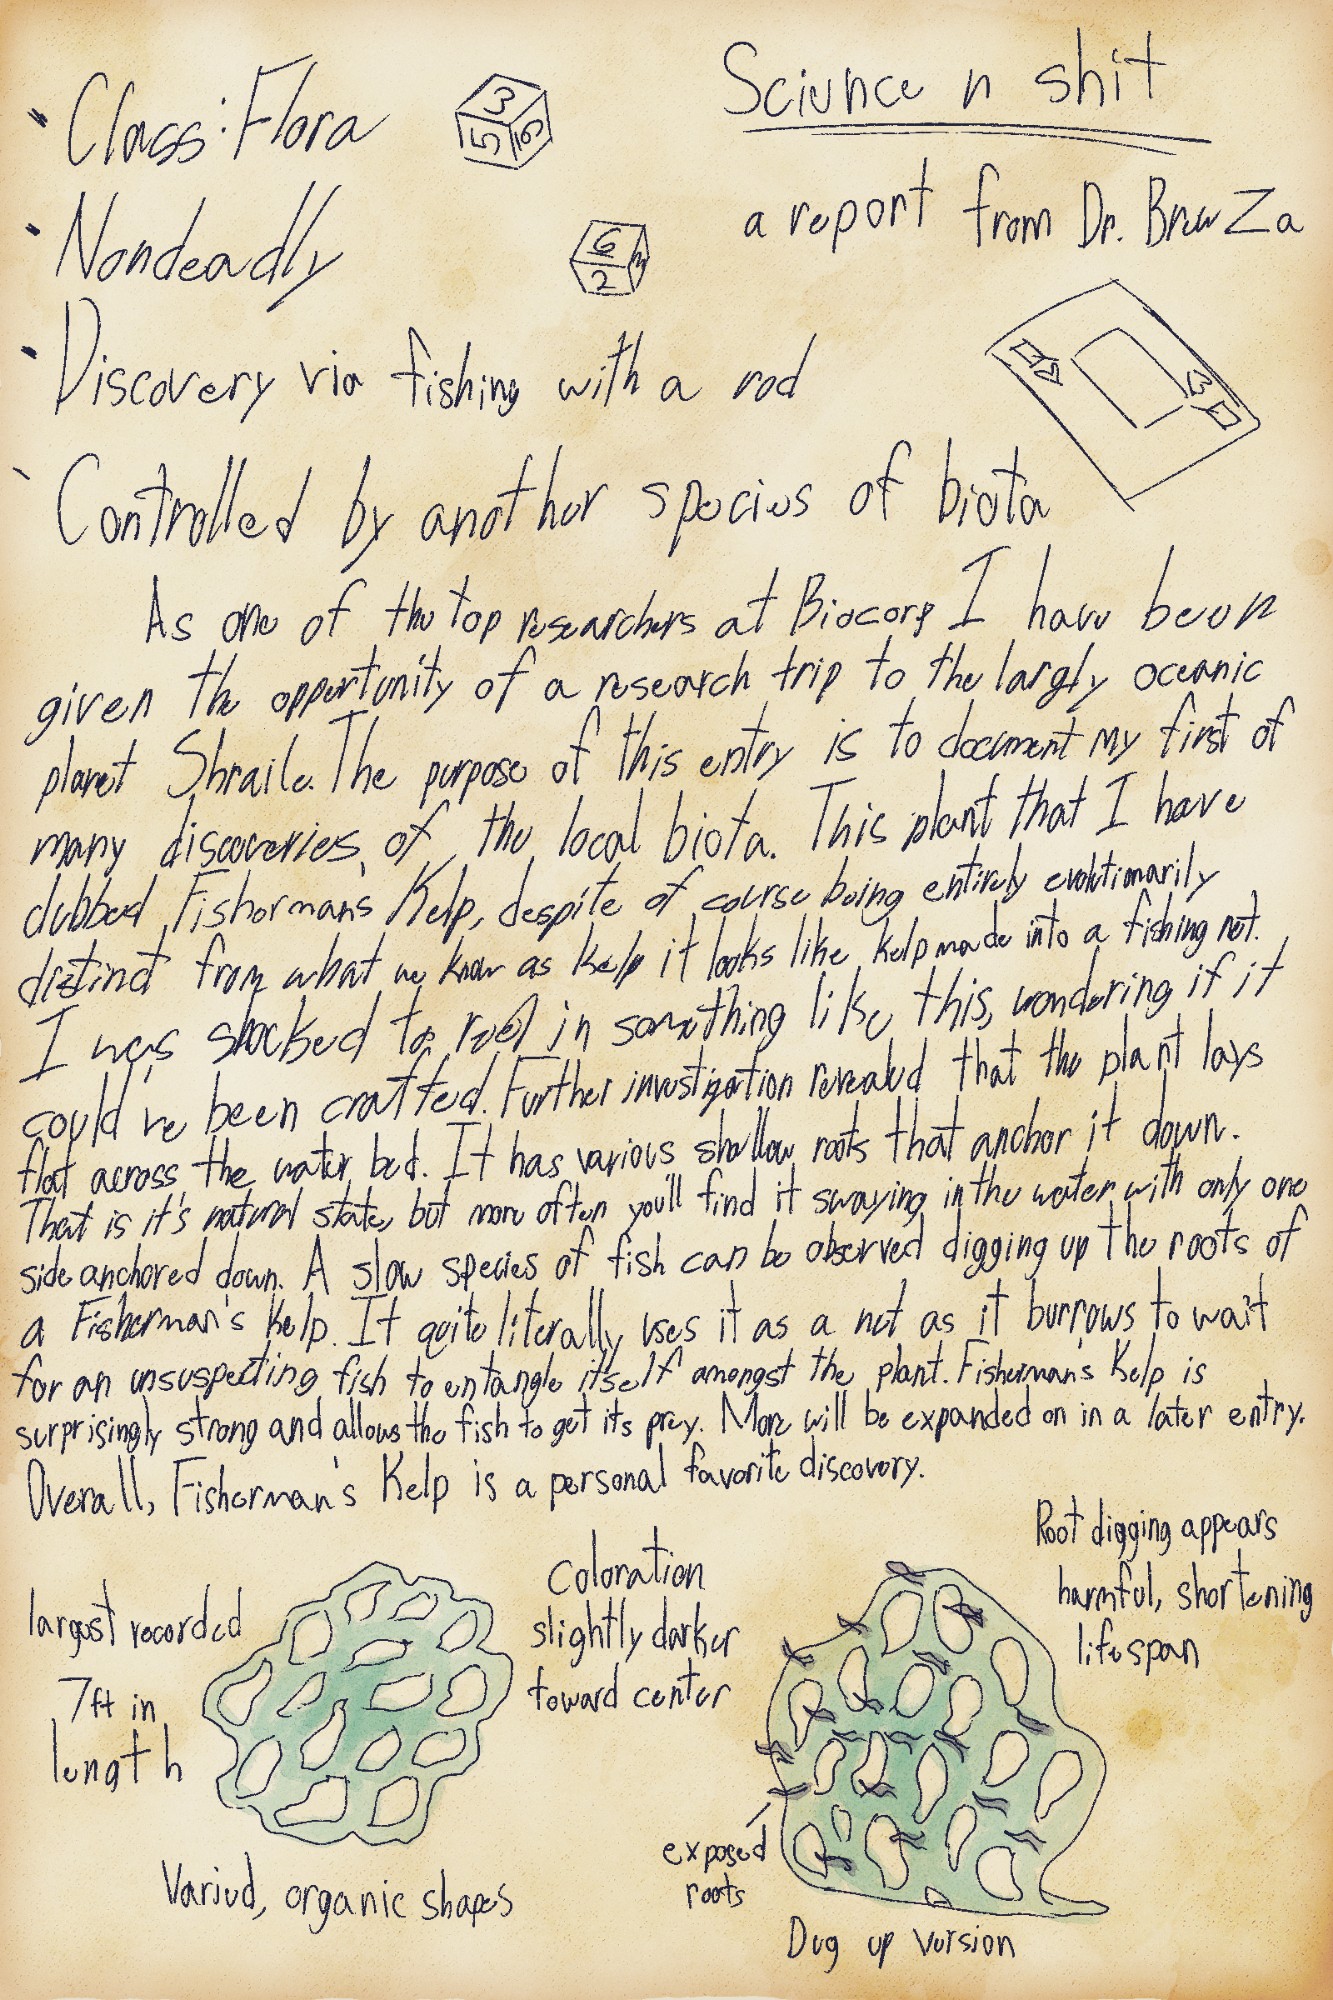 Science n shit
a report from Dr. Brew Za
• Class: Flora
3
5 6
• Nondeadly
6
2 3
• Discovery via fishing with a rod
3
• Controlled by another species of biota
As one of the top researchers at Biocorp I have been
given the opportunity of a research trip to the largly oceanic
planet Shraile. The purpose of this entry is to document my first of
many discoveries of the local biota. This plant that I have
dubbed Fisherman's Kelp, despite of course being entirely evolutionarily
distinct from what we know as kelp it looks like kelp made into a fishing net.
I was shocked to reel in something like this, wondering if it
could've been crafted. Further investigation revealed that the plant lays
flat across the water bed. It has various shallow roots that anchor it down.
That is it's natural state, but more often you'll find it swaying in the water with only one
side anchored down. A slow species of fish can be observed digging up the roots of
a Fisherman's Kelp. It quite literally uses it as a net as it burrows to wait
for an unsuspecting fish to entangle itself amongst the plant. Fisherman's Kelp is
surprisingly strong and allows the fish to get its prey. More will be expanded on in a later entry.
Overall, Fisherman's Kelp is a personal favorite discovery.
largest recorded
7ft in
length
Varied, organic shapes
Coloration
slightly darker
toward center
Root digging appears
harmful, shortening
lifespan
exposed
roots
Dug up version